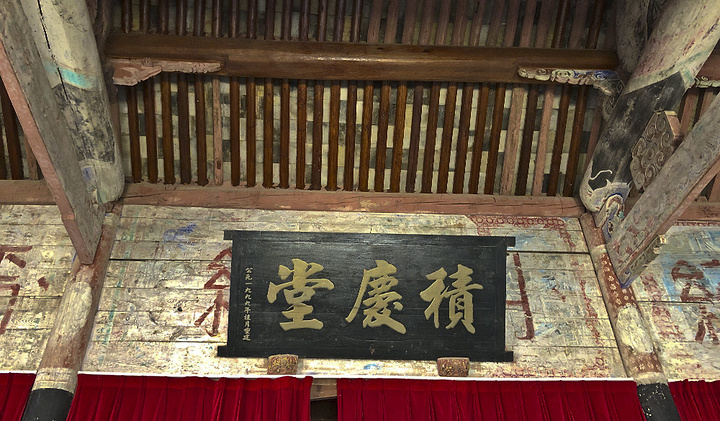 積慶堂
公元一九九九年佳月重建